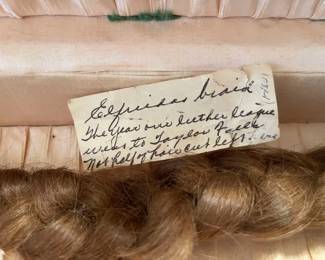 Elfriedas braid
The year our Luther League
went to Taylor Falls
Not half of hair cut left